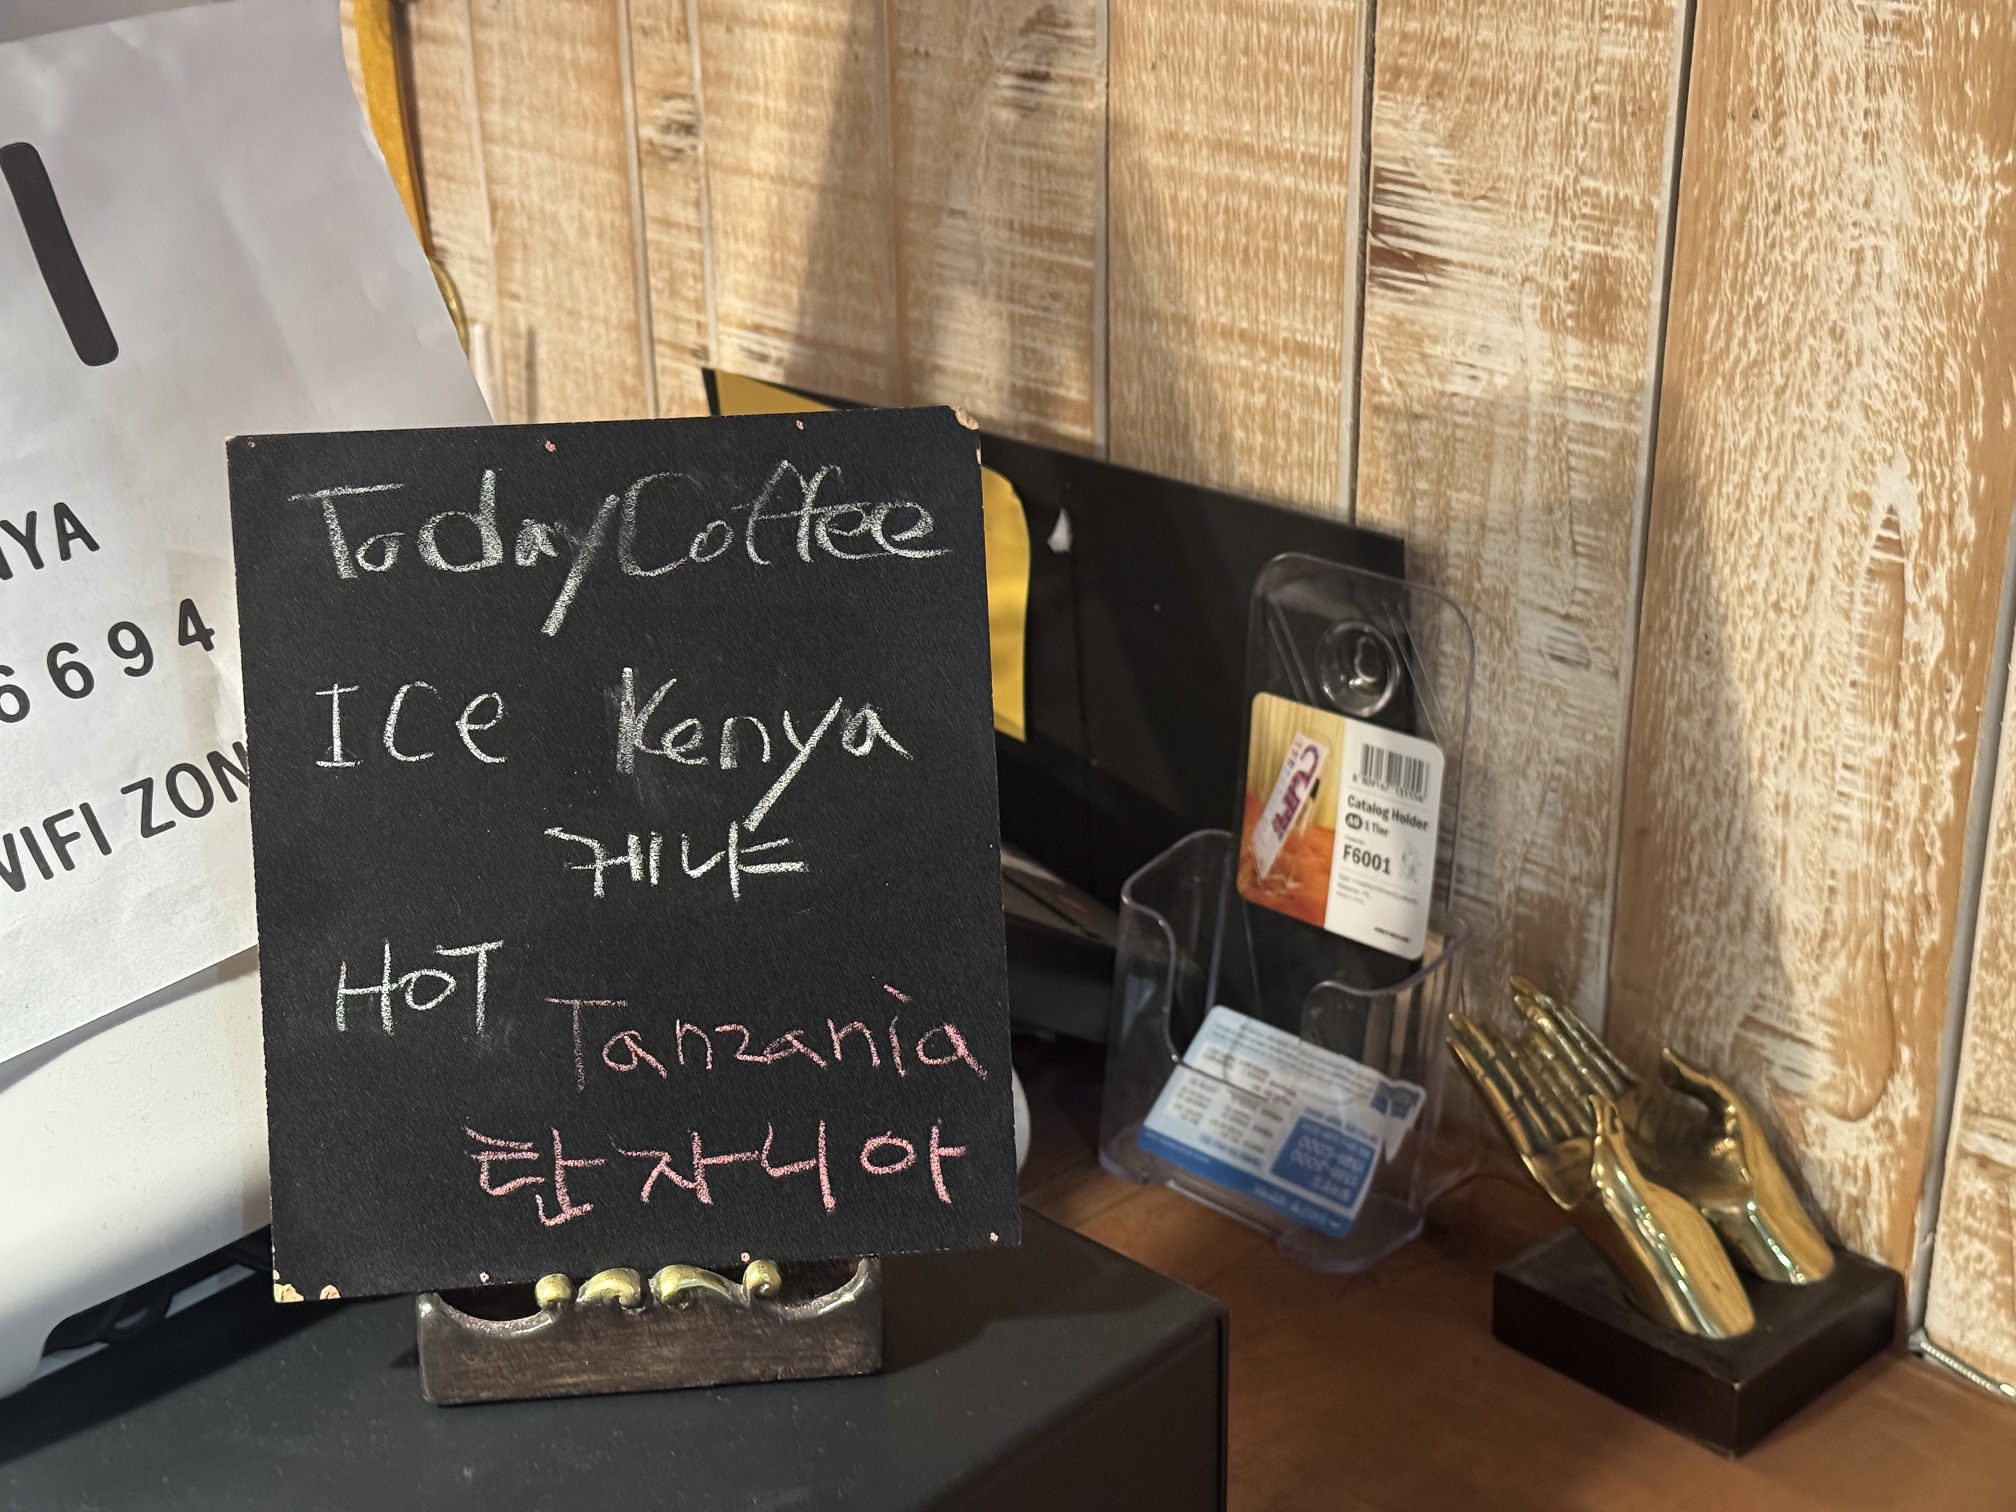 I
NYA
6694
WIFI ZON
Today Coffee
ICe Kenya
케냐
HOT
Tanzania
탄자니아
Catalog Holder
A6 1 Tier
F6001